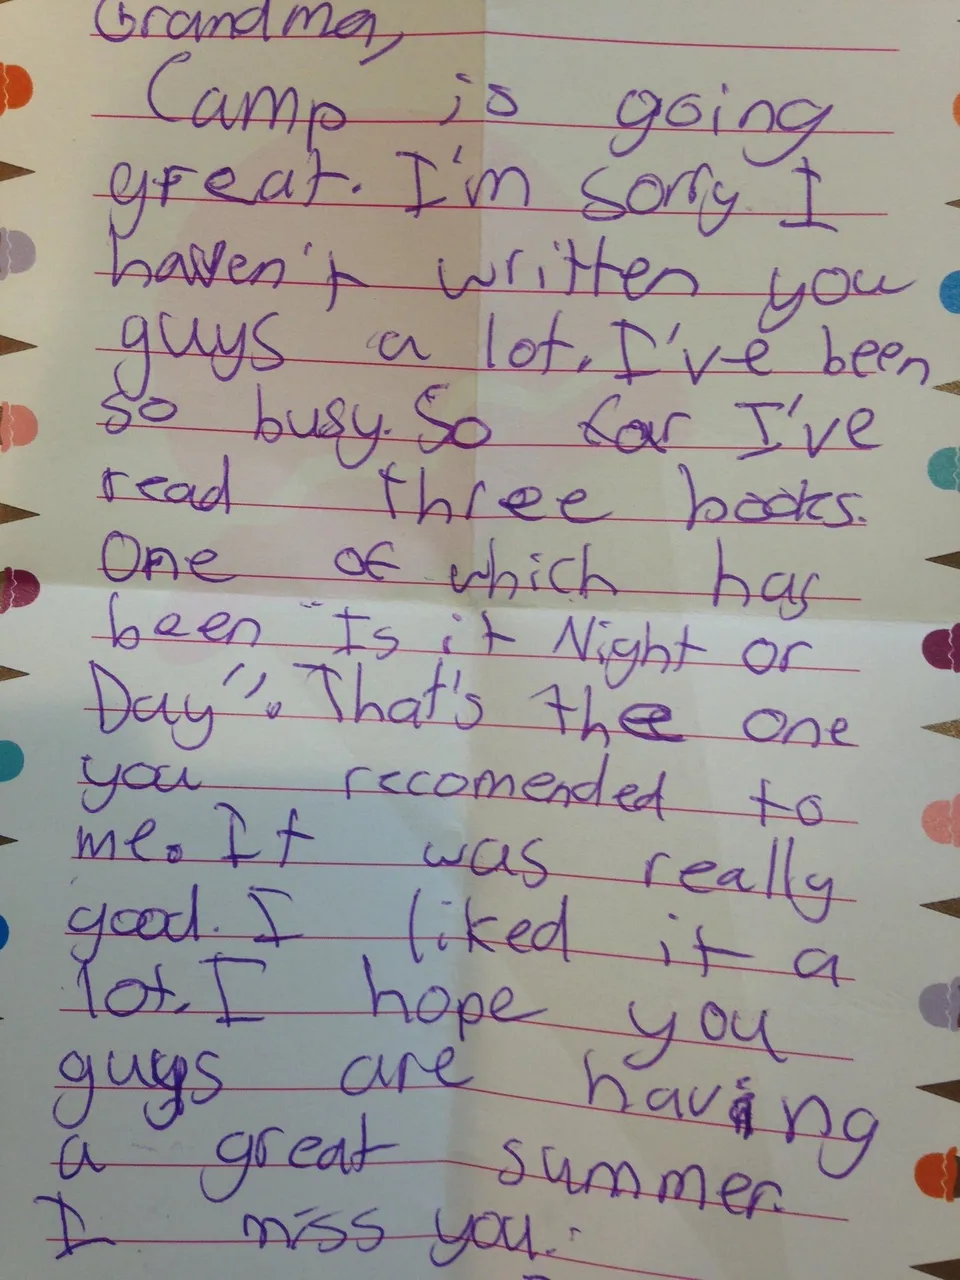 Grandma,
Camp is going
great. I'm sorry I
haven't written you
guys a lot. I've been
so busy. So far I've
read three books.
One of which has
been "Is it Night or
Day". That's the one
you recomended to
me. It was really
good. I liked it a
lot. I hope you
guys are having
a great summer.
I miss you.